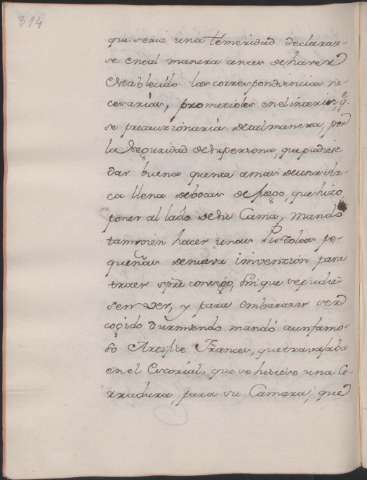 314
que seria una temeridad declarar-
se en tal manera antes de haver
establecido las correspondencias ne
cesarias, prometiole en el interin q.e
se precaucionaria de tal manera, por
la seguridad de su persona, que pudiese
dar buena quenta a mas de una
ca llena de bocas de fuego, que hizo
poner al lado de su Cama, mandò
tambien hacer unas Pistolas pe-
queñas de nueva invencion para
traer siempre consigo, sin que se pudie-
sen ver, y para embarazar ser
cogido durmiendo mandò a un famo-
so Artifice Frances, que travajaba
en el Escorial, que se hiciese una Ce-
rradura, para su Camara, que